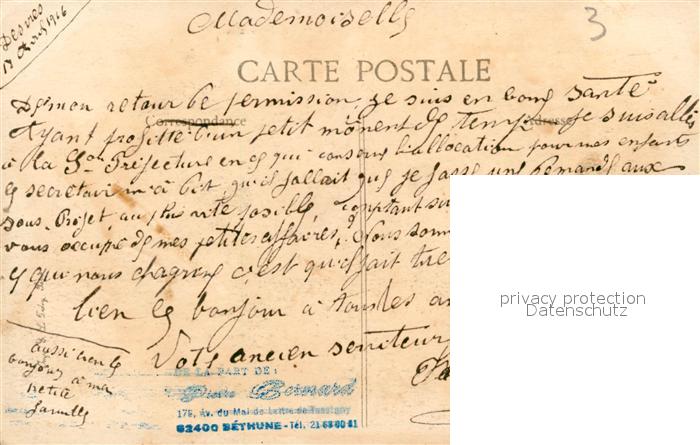 Desvres
17 Avril 1916
Mademoiselle
3
CARTE POSTALE
Correspondance
Adresse
De mon retour de permission, je suis en bone santé
Ayant profitté d'un petit moment de temp je suis allé
à la Sou Préfecture en ce qui conserne l'allocation pour mes enfants
le secretair m'a dit, qu'il fallait que je fasse une demande aux
sous Préfet au plus vite posible, comptant su
vous occupé de mes petites affaires, Nous som
ce que nous chagrine c'est qu'il fait tré
bien le bonjour à toutes
Vote ancien serviteur
aussi bien le
bonjour à ma
petite
famille
DE LA PART DE:
Bernard
175, Av. du Mal de Lattre de Tassigny
62400 BÉTHUNE - Tél. 21 68 00 81
privacy protection
Datenschutz